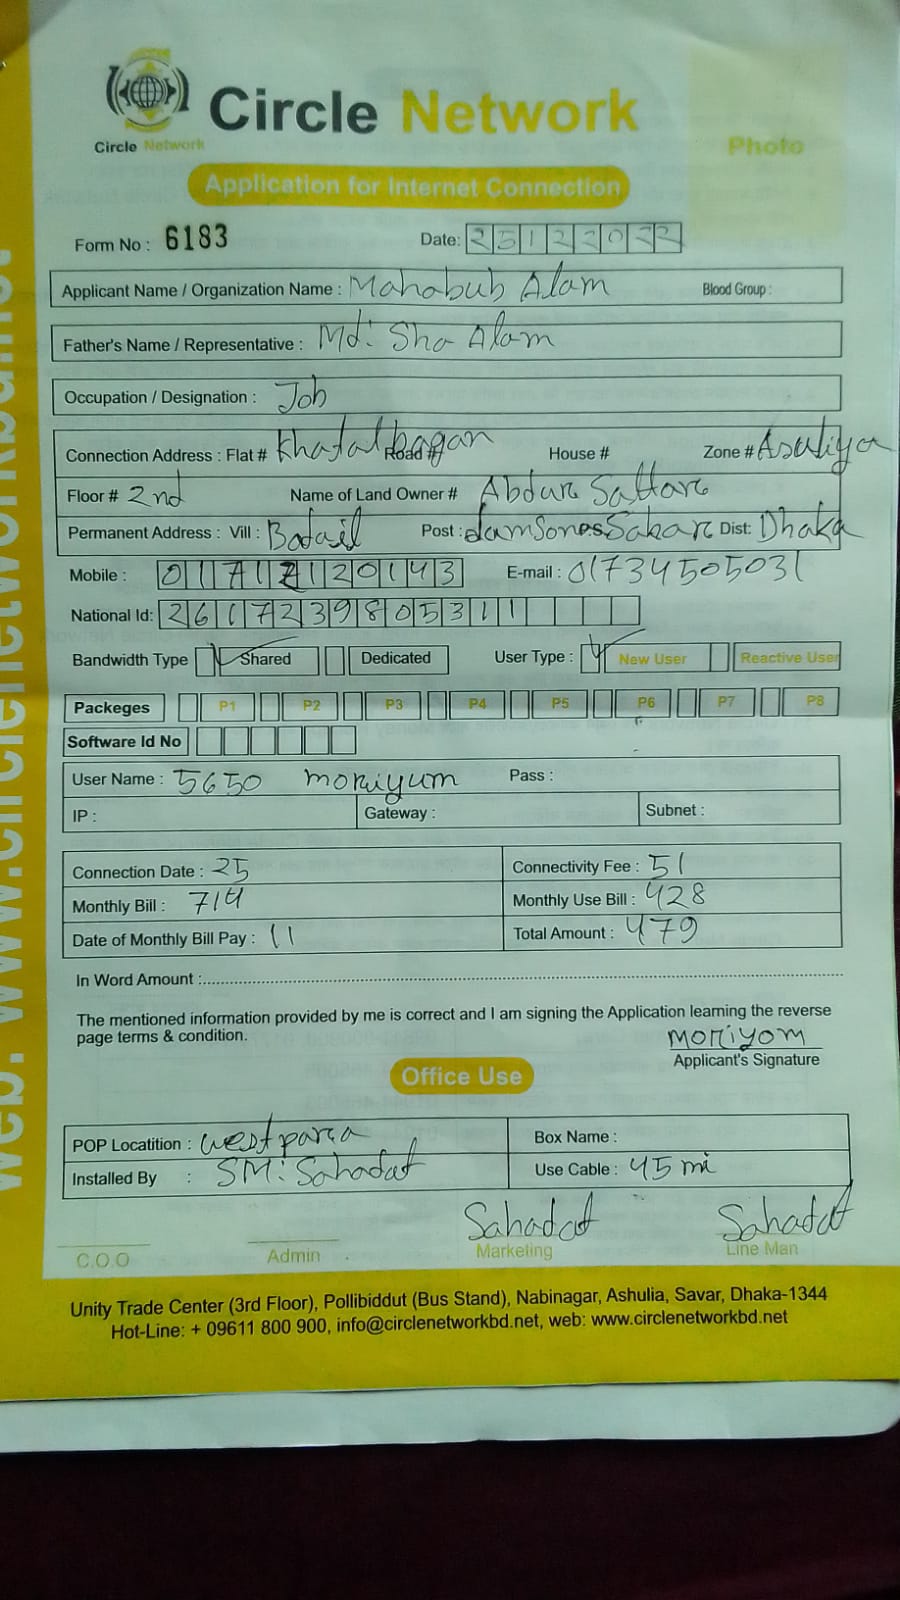 Circle Network
Circle Network
Photo
Application for Internet Connection
Form No : 6183 Date: 25122022
Applicant Name / Organization Name : Mahabub Alam Blood Group :
Father's Name / Representative : Md: Sha Alam
Occupation / Designation : Job
Connection Address : Flat # Khatalbagan Road # House # Zone # Asuliya
Floor # 2nd Name of Land Owner # Abdur Sattar
Permanent Address : Vill : Post : Dist: Dhaka
Mobile : 01712120143 E-mail : 01734505031
National Id: 2617239805311
Bandwidth Type Shared Dedicated User Type : New User Reactive User
Packeges P1 P2 P3 P4 P5 P6 P7 P8
Software Id No
User Name : 5650 moriyum Pass :
IP : Gateway : Subnet :
Connection Date : 25 Connectivity Fee : 51
Monthly Bill : 714 Monthly Use Bill : 428
Date of Monthly Bill Pay : 11 Total Amount : 479
In Word Amount :
The mentioned information provided by me is correct and I am signing the Application learning the reverse
page terms & condition.
moriyom
Applicant's Signature
Office Use
POP Locatition : west para Box Name :
Installed By : SM: Sahadat Use Cable : 45 mi
Sahadat Sahadat
C.O.O Admin Marketing Line Man
Unity Trade Center (3rd Floor), Pollibiddut (Bus Stand), Nabinagar, Ashulia, Savar, Dhaka-1344
Hot-Line: + 09611 800 900, info@circlenetworkbd.net, web: www.circlenetworkbd.net
web: www.circlenetworkbd.net